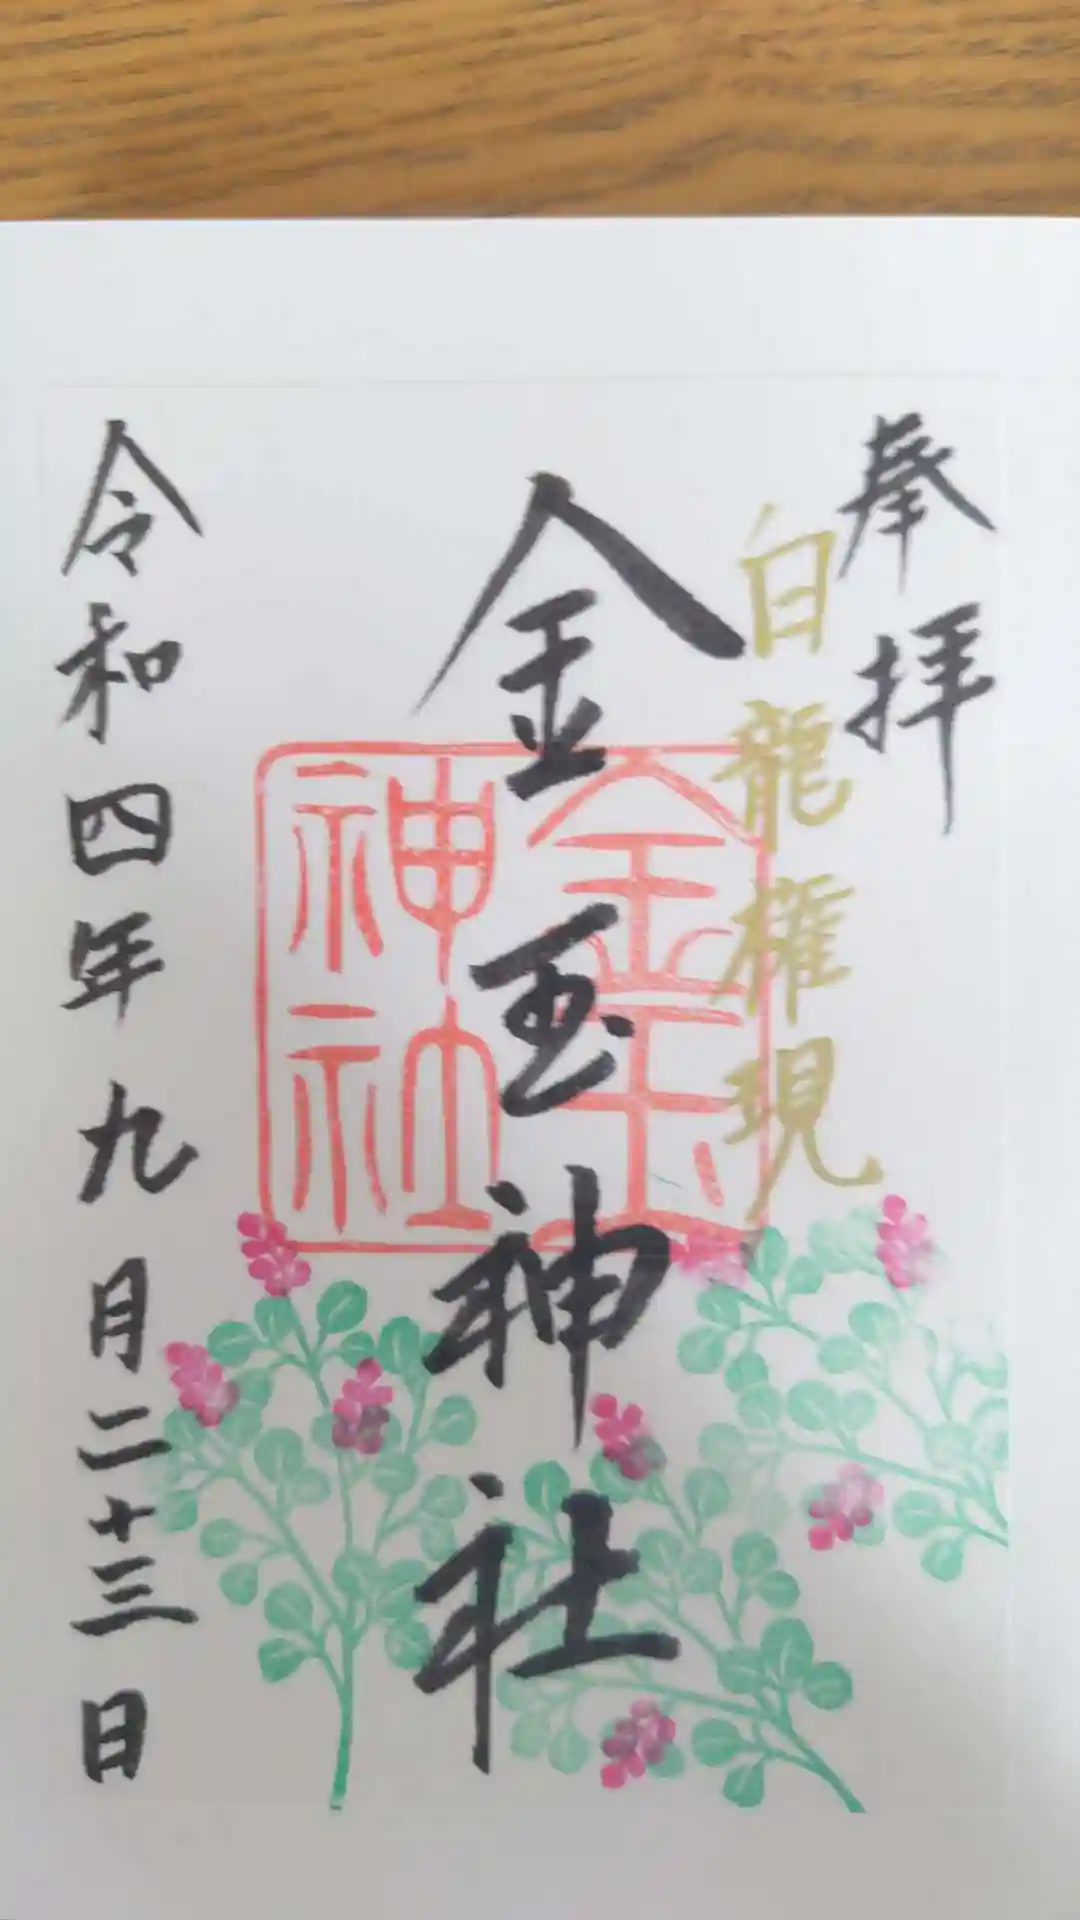 奉拝
白龍権現
金玉神社
金玉
神社
令和四年九月二十三日